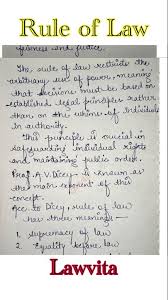 Rule of Law
fairness and justice.
The rule of law restricts the
arbitrary use of power, meaning
that decisions must be based on
established legal principles rather
than on the whims of individuals
in authority.
This principle is crucial in
safeguarding individual rights
and maintaining public order.
Prof. A.V. Dicey is known as
the main exponent of this
concept.
Acc. to Dicey, rule of law
has three meanings —
1. Supremacy of law
2. Equality before law
Lawvita